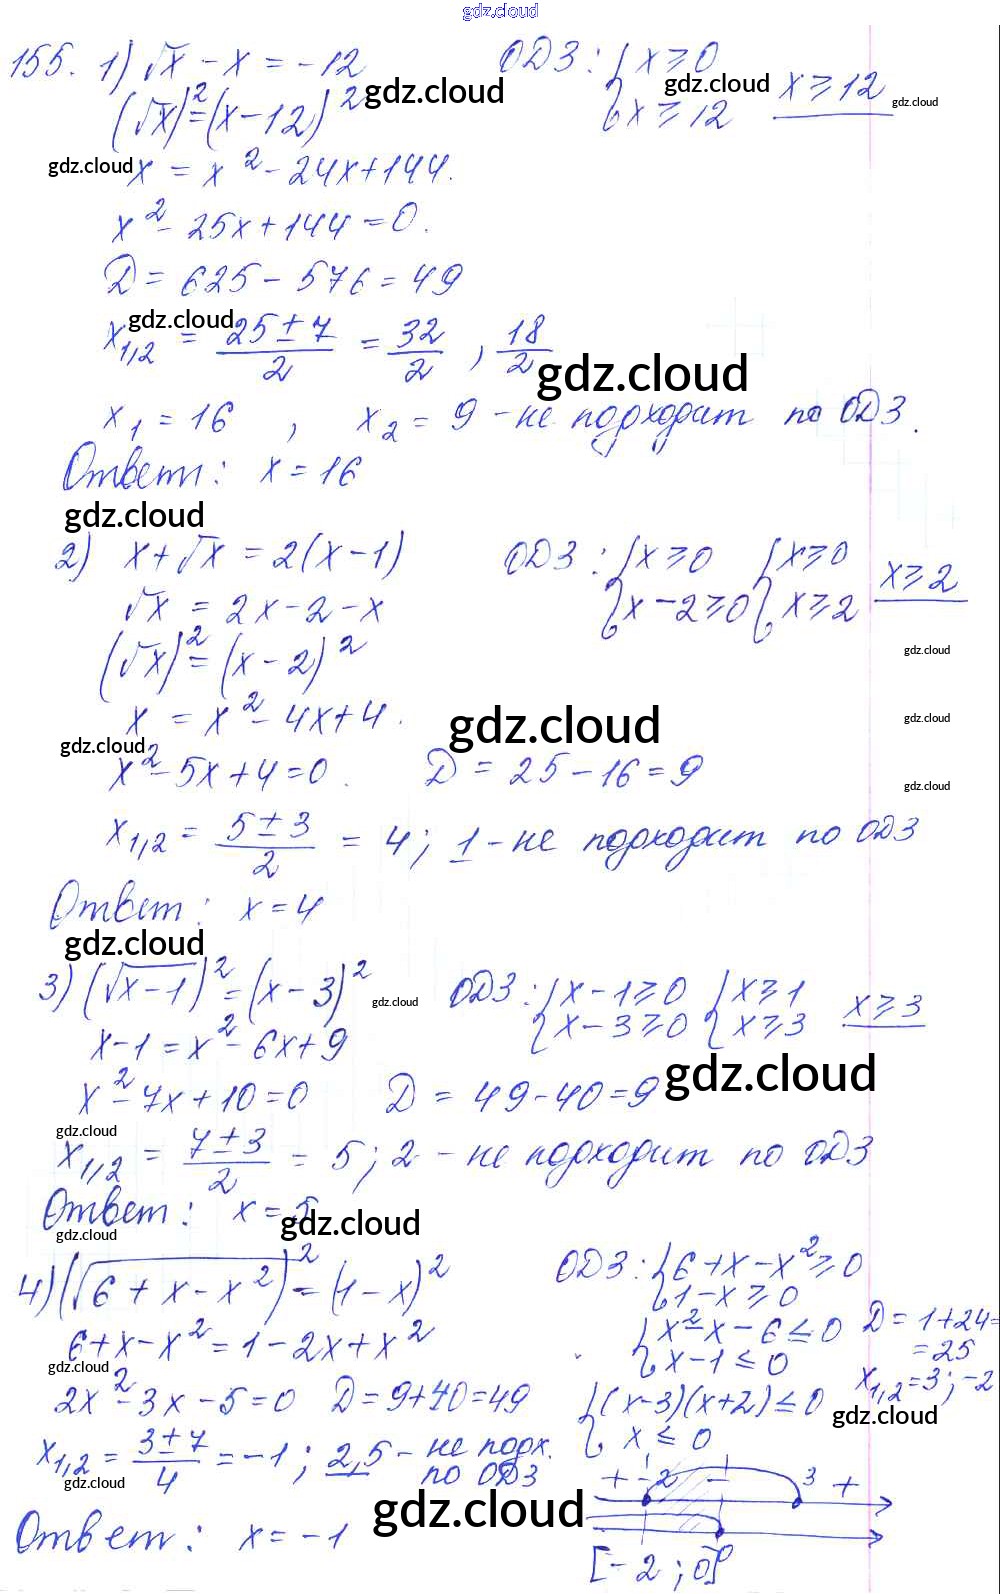 gdz.cloud
155. 1) √x - x = -12 ОДЗ: { x ≥ 0
(√x)² = (x-12)² gdz.cloud { x ≥ 12 gdz.cloud x ≥ 12 gdz.cloud
gdz.cloud x = x² - 24x + 144.
x² - 25x + 144 = 0.
D = 625 - 576 = 49
gdz.cloud
x₁,₂ = (25 ± 7)/2 = 32/2 , 18/2
gdz.cloud
x₁ = 16 , x₂ = 9 - не подходит по ОДЗ.
Ответ: x = 16
gdz.cloud
2) x + √x = 2(x-1) ОДЗ: { x ≥ 0 { x ≥ 0 x ≥ 2
√x = 2x - 2 - x { x - 2 ≥ 0 { x ≥ 2
(√x)² = (x - 2)² gdz.cloud
x = x² - 4x + 4. gdz.cloud gdz.cloud
gdz.cloud
x² - 5x + 4 = 0. D = 25 - 16 = 9 gdz.cloud
x₁,₂ = (5 ± 3)/2 = 4; 1 - не подходит по ОДЗ
Ответ: x = 4
gdz.cloud
3) (√x-1)² = (x - 3)² gdz.cloud ОДЗ: { x - 1 ≥ 0 { x ≥ 1 x ≥ 3
x - 1 = x² - 6x + 9 { x - 3 ≥ 0 { x ≥ 3
gdz.cloud
x² - 7x + 10 = 0 D = 49 - 40 = 9
gdz.cloud
x₁,₂ = (7 ± 3)/2 = 5; 2 - не подходит по ОДЗ
Ответ: x = 5 gdz.cloud
gdz.cloud
4) (√6 + x - x²)² = (1 - x)² ОДЗ: { 6 + x - x² ≥ 0
{ 1 - x ≥ 0
6 + x - x² = 1 - 2x + x² { x² - x - 6 ≤ 0 D = 1 + 24 =
gdz.cloud { x - 1 ≤ 0 = 25
2x² - 3x - 5 = 0 D = 9 + 40 = 49 { (x-3)(x+2) ≤ 0 x₁,₂ = 3; -2
{ x ≤ 0 gdz.cloud
x₁,₂ = (3 ± 7)/4 = -1; 2,5 - не подх. по ОДЗ
gdz.cloud
+ -2 - 3 +
gdz.cloud
Ответ: x = -1 0
[-2 ; 0]